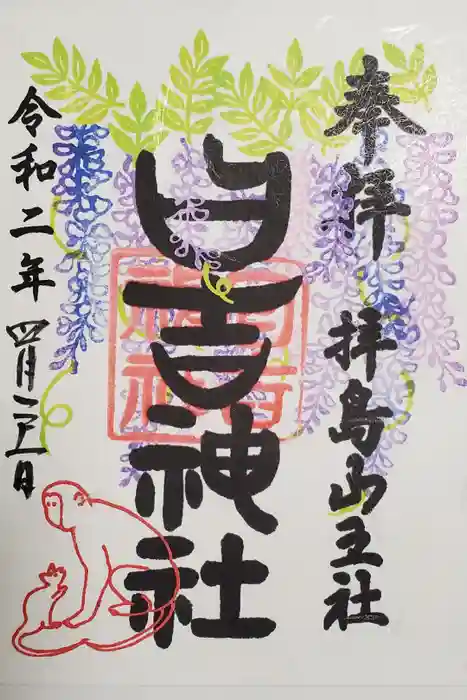 奉拝 拝島山王社
日吉神社
令和二年 四月 日